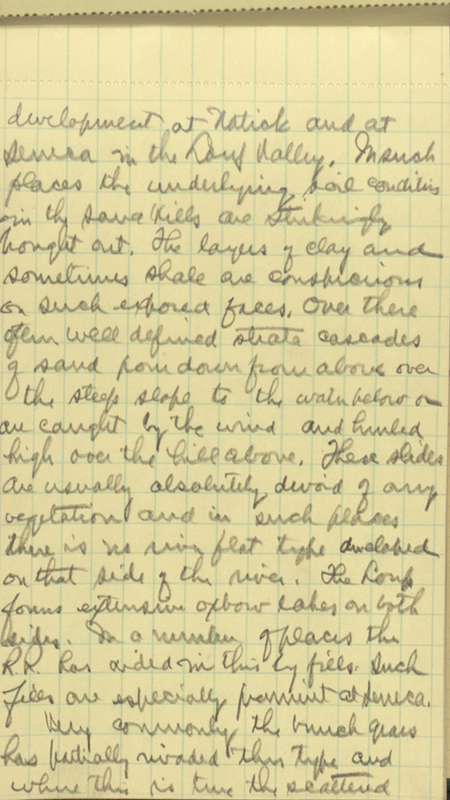 development at Natick and at
Seneca in the Loup Valley. In such
places the underlying soil conditions
in the sand hills are strikingly
brought out. The layers of clay and
sometimes shale are conspicuous
on such exposed faces. Over there
often well defined strata cascades
of sand pour down from above over
the steep slope to the water below or
are caught by the wind and hurled
high over the hill above. These slides
are usually absolutely devoid of any
vegetation and in such places
there is no river flat type developed
on that side of the river. The Loup
forms extensive oxbow lakes on both
sides. In a number of places the
R.R. has aided in this by fills. Such
fills are especially prominent at Seneca.
Very commonly the bunch grass
has partially invaded this type and
where this is true the scattered